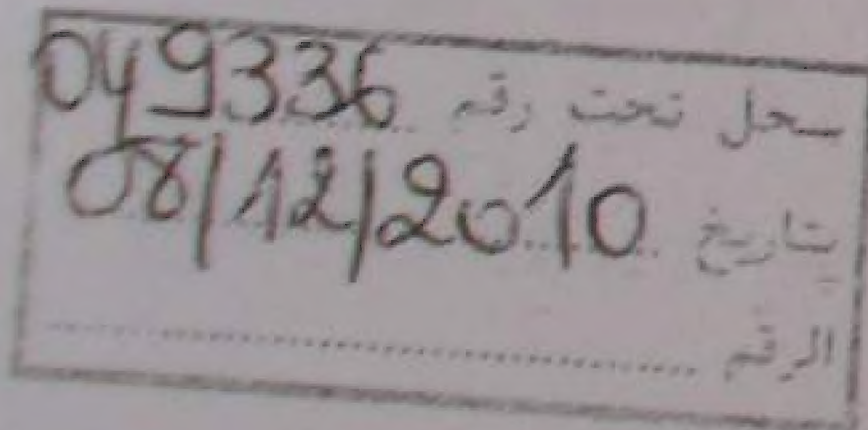 سجل تحت رقم 049336
بتاريخ 08/12/2010
الرقم ........................